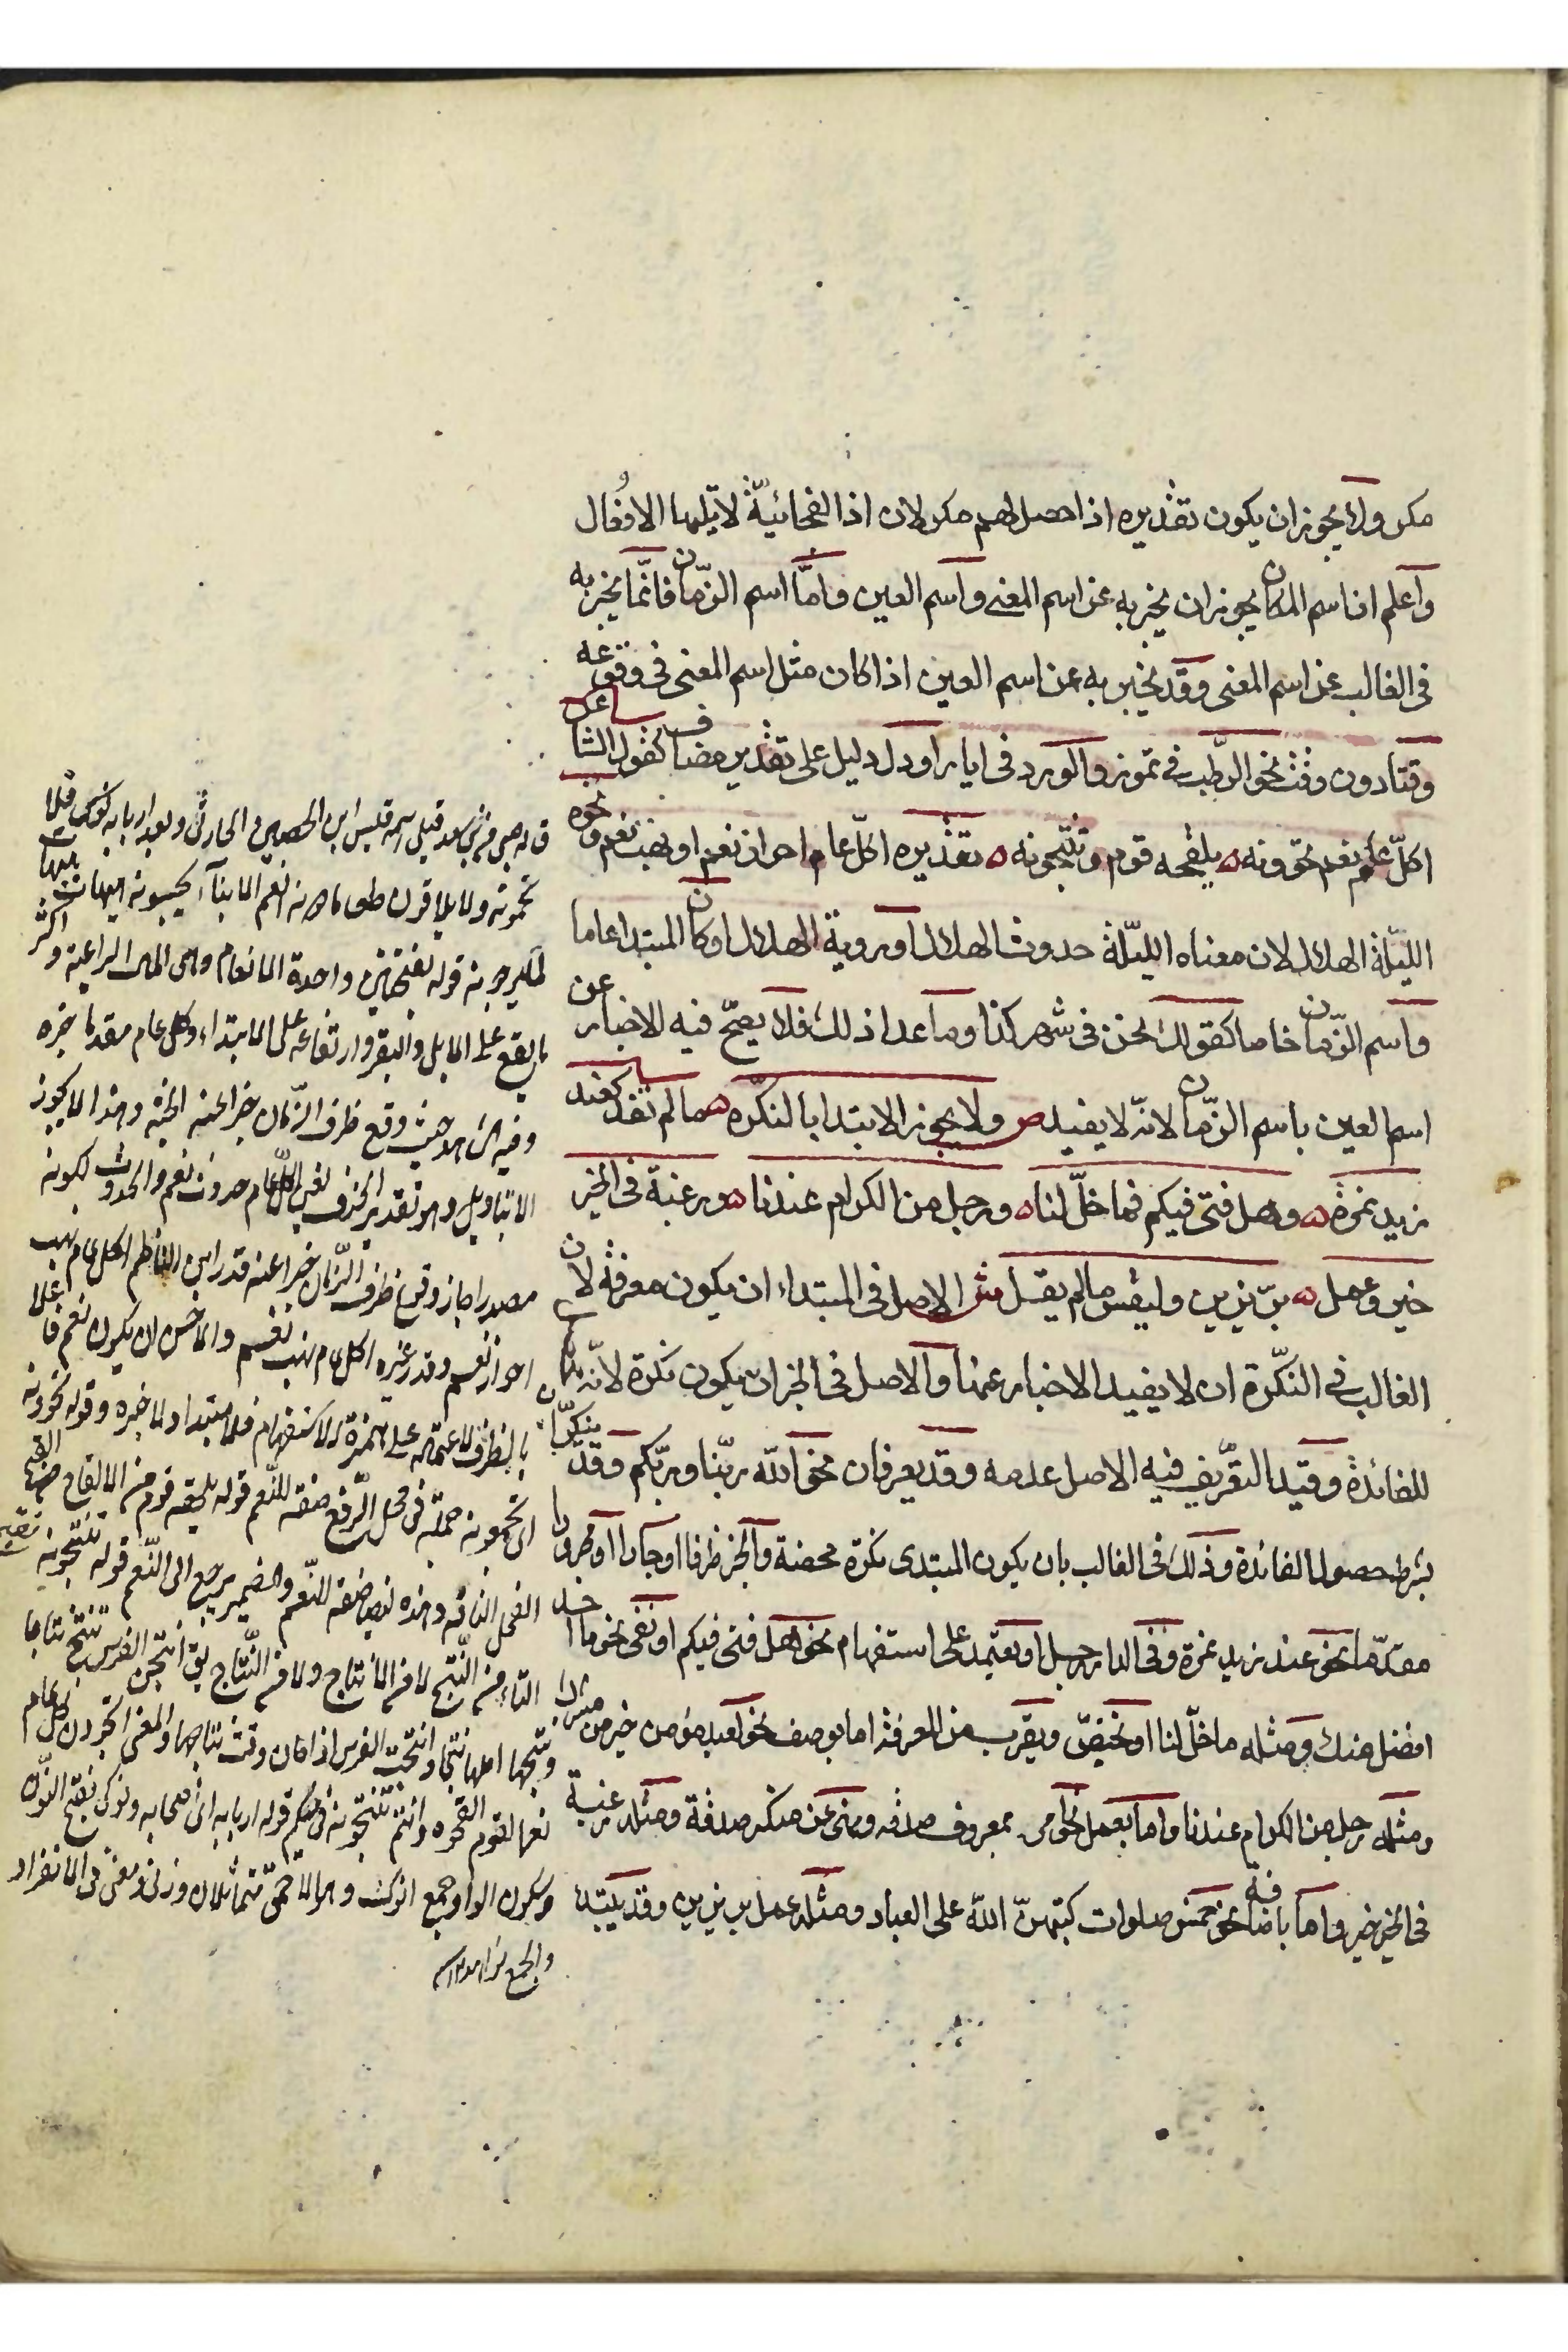 مكر ولا يجوز ان يكون تقديره اذا حصل لهم مكر لان اذا الفجائيّة لا تليها الافعال
واعلم ان اسم المكان يجوز ان يخبر به عن اسم المعنى واسم العين وامّا اسم الزّمان فانّما يخبر به
فى الغالب عن اسم المعنى وقد يخبر به عن اسم العين اذا كان مثل اسم المعنى فى وقوعه
وقتا دون وقت نحو الرّطب فى تموز والورد فى ايار او دل دليل على تقدير مضاف كقول الشاعر
اكلّ عام نعم تحوونه ه يلقحه قوم وتنتجونه ه تقديره اكلّ عام احراز نعم او نهب نعم ونحوه
الليّلة الهلال لان معناه الليّلة حدوث الهلال او روية الهلال او كان المبتدا عاما
واسم الزّمان خاصا كقولك نحن فى شهر كذا وما عدا ذلك فلا يصحّ فيه الاخبار عن
اسم العين باسم الزّمان لانّه لا يفيد ص ولا يجوز الابتدا بالنكّره ه ما لم تفد كعند
زيد نمرة ه وهل فتى فيكم فما خلّ لنا ه ورجل من الكرام عندنا ه ورغبة فى الخير
خير وعمل ه برّ يزين وليقس ما لم يقل ش الاصل فى المبتداء ان يكون معرفة لان
الغالب فى النكّرة ان لا يفيد الاخبار عنها والاصل فى الخبر ان يكون نكرة لانّه محط
للفائدة وقيّد التعّريف فيه الاصل عدمه وقد يعرفان نحو الله ربّنا وربّكم وقد ينكرّان
بشرط حصول الفائدة وذلك فى الغالب بان يكون المبتدى نكرة محضة والخبر ظرفا او جارا او مجرورا
مقدّما نحو عند زيد نمرة وفى الدار رجل او يعتمد على استفهام نحو هل فتى فيكم او نفى نحو ما احد
افضل منك ومثله ما خلّ لنا او تختصّ ويقرب من المعرفة اما بوصف نحو لعبد مؤمن خير من مشرك
ومثله رجل من الكرام عندنا واما بعمل نحو امر بمعروف صدقه ونهى عن منكر صدقة ومثله رغبة
فى الخير خير واما باضافة نحو خمس صلوات كتبهنّ الله على العباد ومثله عمل بر يزين وقد يبتدا
قاله صبى من بنى سعد قيل اسمه قيس ابن الحصين الحارثى وبعده اربابه نوكى فلا
يحمونه ولا يلاقون طعانا دونه انعم الابناء تحسبونه ايهات ايهات
لما يرجونه قوله نعم بفتحتين واحدة الانعام وهى المال الراعية واكثر
ما يقع على الابل والبقر وارتفاعه على الابتداء وكل عام مقدما خبره
وفيه الشاهد حيث وقع ظرف الزّمان خبرا عنه الجثة وهذا لا يجوز
الا بتاويل وهو تقدير الحذف تقديره اكلّ عام حدوث نعم والحدوث لكونه
مصدرا جاز وقوع ظرف الزّمان خبرا عنه قدر ابن الناظم اكل عام نهب
احراز نعم وقدر غيره اكل عام نهب نعم والاحسن ان يكون نعم فاعلا
بالظرف لاعتماده على همزة الاستفهام فلا مبتدا ولا خبر وقوله تحوونه
اى تحمونه جملة فى محل الرّفع صفة للنّعم قوله يلقحه قوم من الالقاح من القح
الفحل الناقة وهذه ايضا صفة للنّعم والضمير يرجع الى النّعم قوله تنتجونه بفتح
التاء من النّتج لا من الانتاج ولا من النّتاج يق انتجت الفرس تنتج نتاجا
ونتجها اهلها نتجا وانتجت الفرس اذا كان وقت نتاجها والمعنى اتجردن كل عام
نعما لقوم القحوه وانتم تنتجونه فى حيكم قوله اربابه اى اصحابه ونوكى بفتح النّون
وسكون الواو جمع انوك وهو الاحمق متماثلان وزنا ومعنى فى الانفراد
والجمع